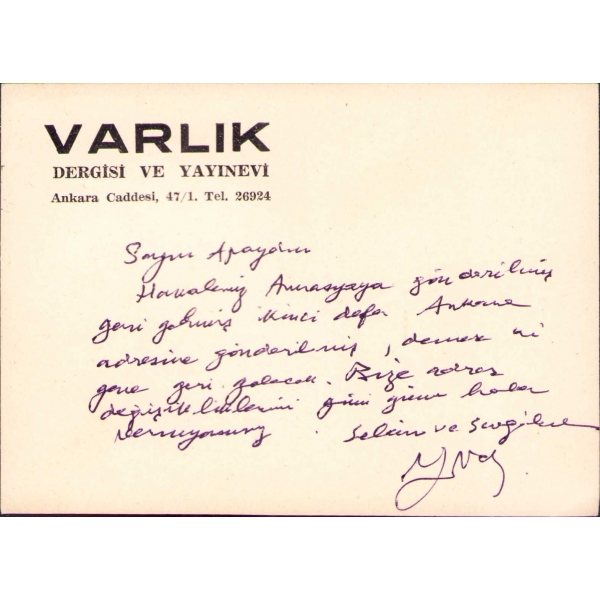 VARLIK
DERGİSİ VE YAYINEVİ
Ankara Caddesi, 47/1. Tel. 26924
Sayın Apaydın
Havaleniz Amasyaya gönderilmiş
geri gelmiş ikinci defa Ankara
adresine gönderilmiş, demek ki
gene geri gelecek. Bize adres
değişikliklerini günü gününe haber
vermiyorsunuz Selâm ve Sevgiler